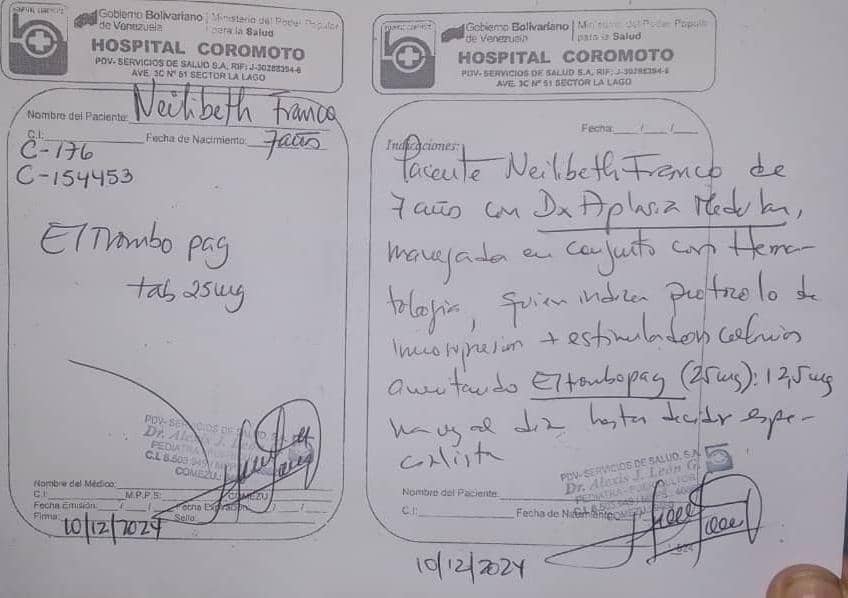 Gobierno Bolivariano de Venezuela
Ministerio del Poder Popular para la Salud
HOSPITAL COROMOTO
PDV- SERVICIOS DE SALUD S.A. RIF: J-30288354-6
AVE. 3C Nº 51 SECTOR LA LAGO
Nombre del Paciente: Neilibeth Franco
C.I: Fecha de Nacimiento: 7 año
C-176
C-154453
ElTrombo pag
tab 25mg
PDV- SERVICIOS DE SALUD
Dr. Alexis J. León
PEDIATRA
COMEZU
Nombre del Médico:
C.I: M.P.P.S: COMEZU
Fecha Emisión: / / Fecha Expiración: / /
Firma: Sello:
10/12/2024
Gobierno Bolivariano de Venezuela
Ministerio del Poder Popular para la Salud
HOSPITAL COROMOTO
PDV- SERVICIOS DE SALUD S.A. RIF: J-30288354-6
AVE. 3C Nº 51 SECTOR LA LAGO
Fecha: / /
Indicaciones:
Paciente Neilibeth Franco de
7 año con Dx Aplasia Medular,
manejada en conjunto con Hema-
tologia, quien indica protocolo de
+ estimuladores
Eltrombopag (25mg): 12,5mg
al dia hasta decidir espe-
cialista
PDV- SERVICIOS DE SALUD, S.A.
Dr. Alexis J. León G.
Nombre del Paciente:
C.I: Fecha de Nacimiento:
10/12/2024